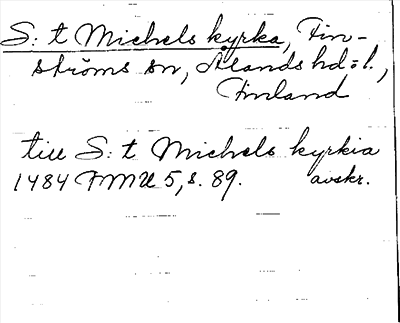 S:t Michels kyrka, Fin-
ströms sn, Ålands hd=l.,
Finland
till S:t Michels kyrkia
1484 FMU 5, s. 89. avskr.